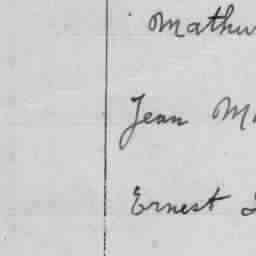 Mathu
Jean M
Ernest